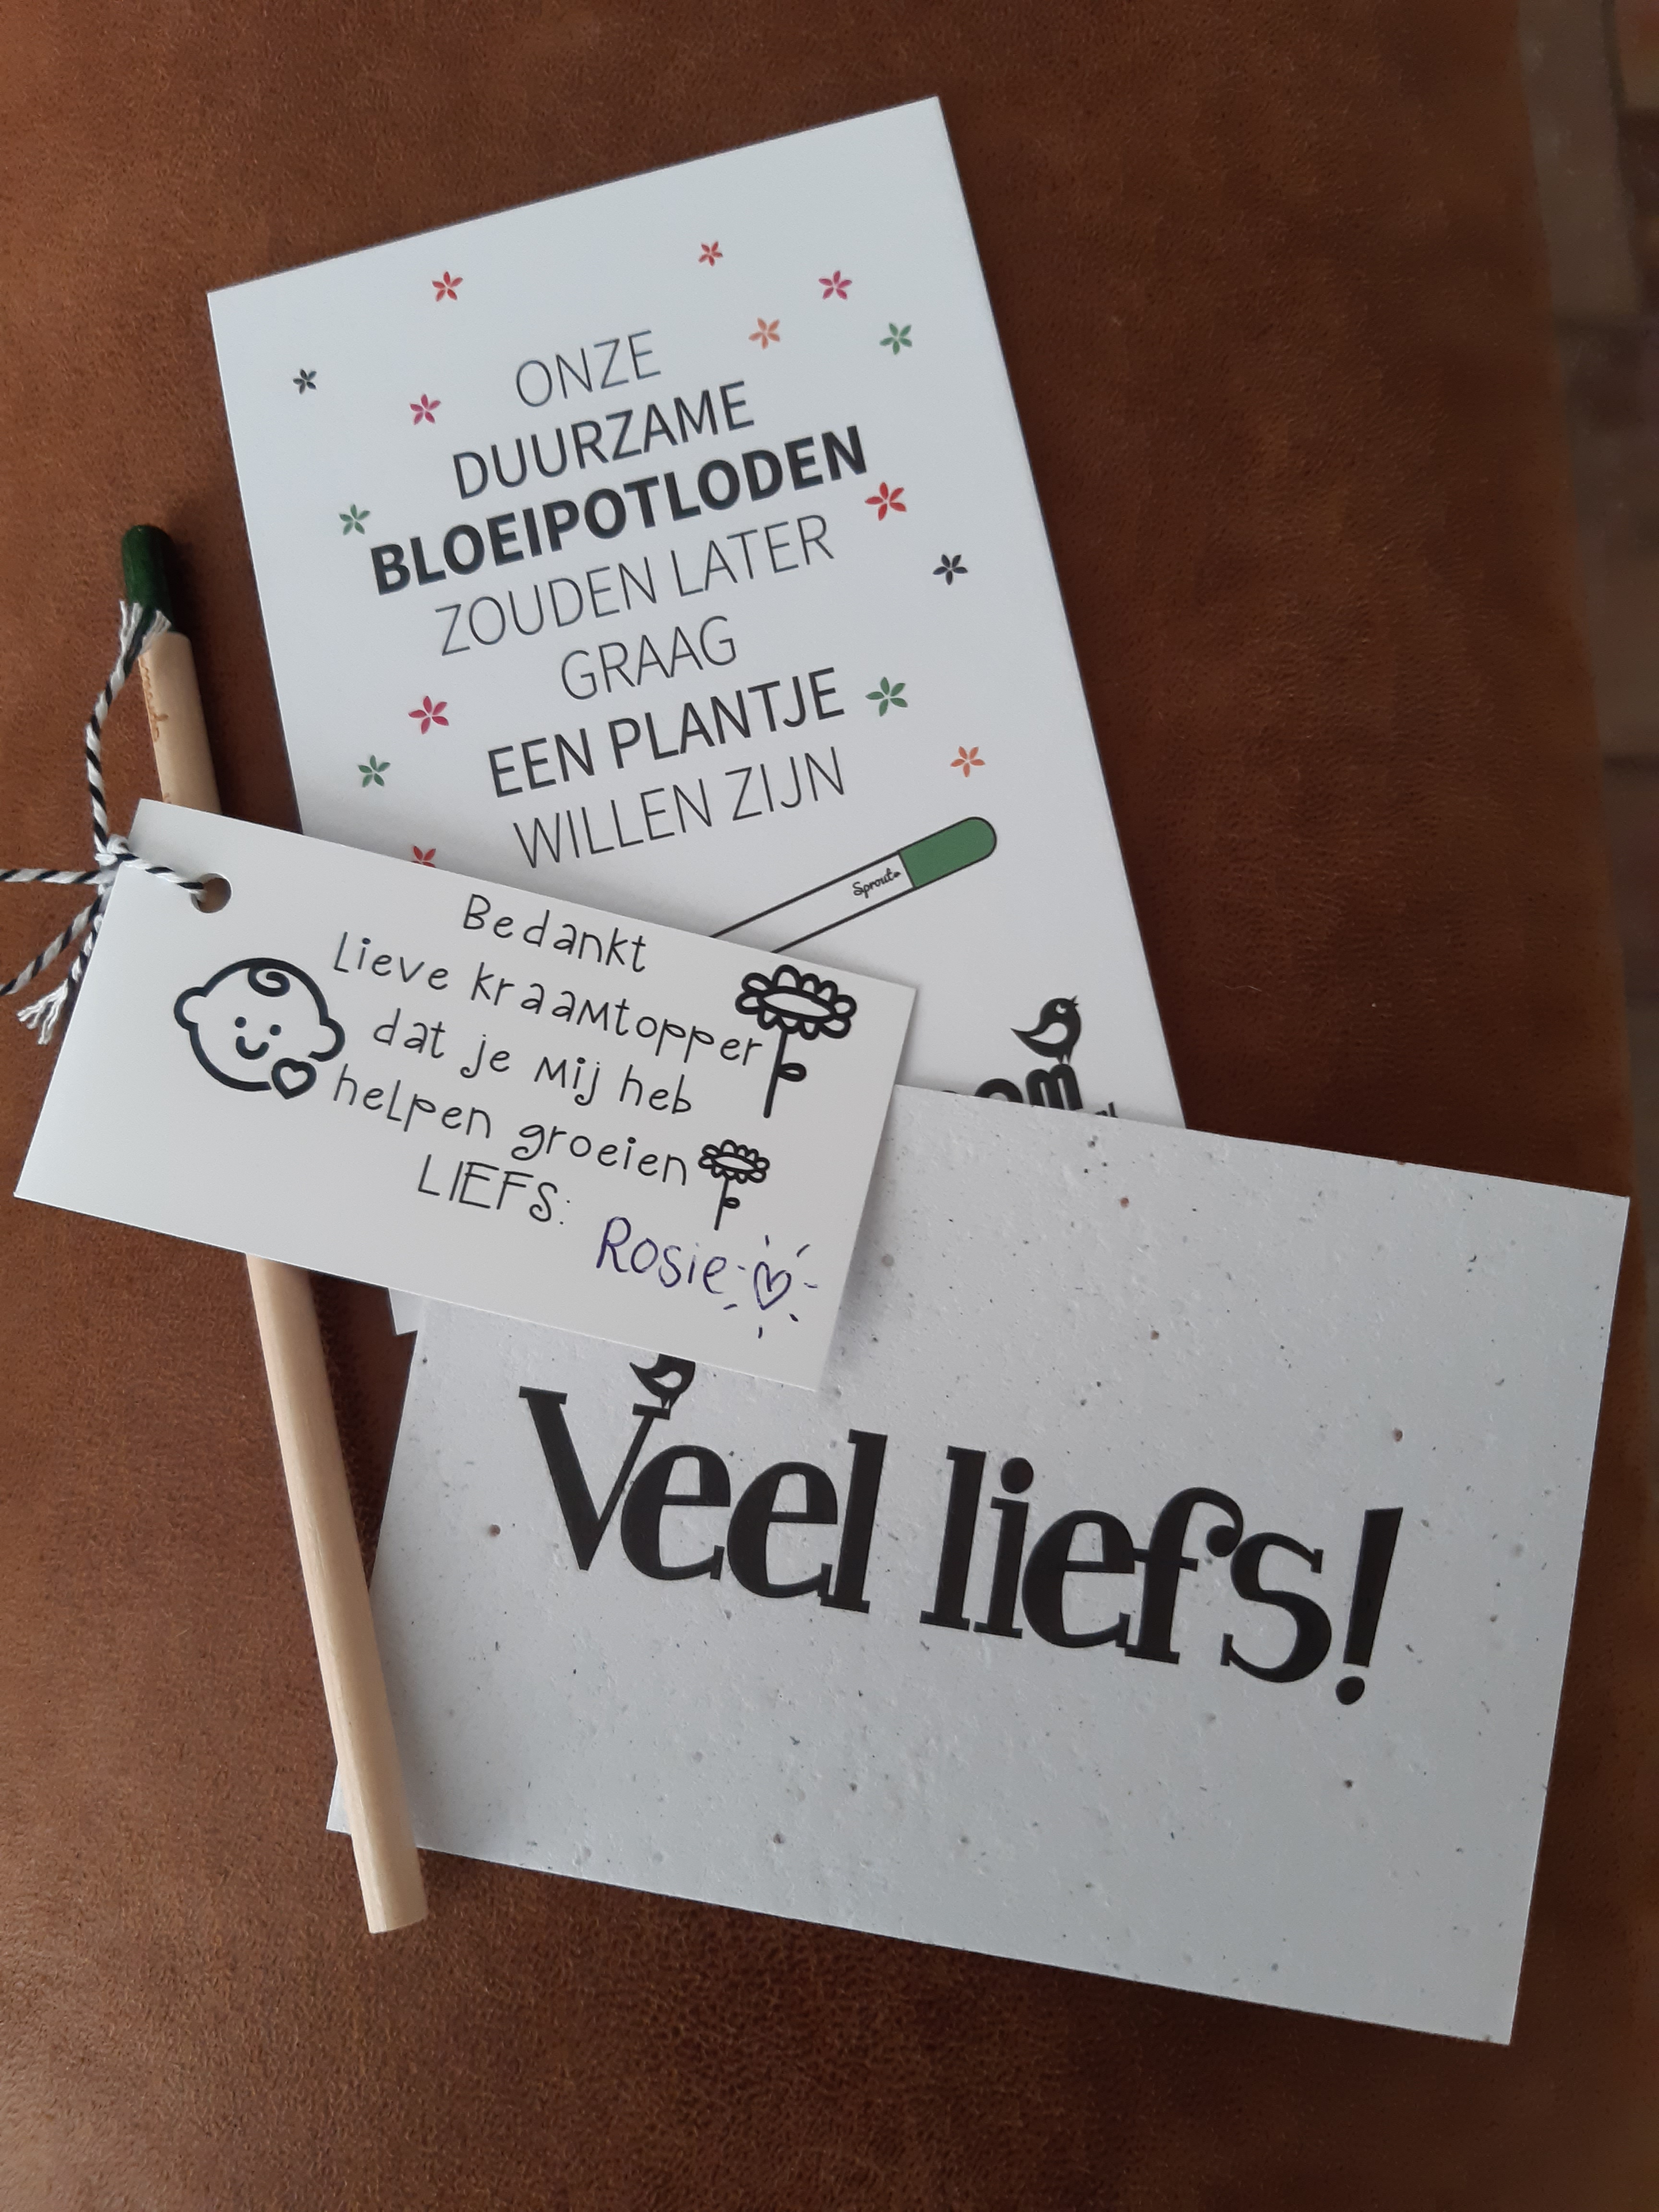 ONZE
DUURZAME
BLOEIPOTLODEN
ZOUDEN LATER
GRAAG
EEN PLANTJE
WILLEN ZIJN
Sprout
Bedankt
Lieve kraamtopper
dat je mij heb
helpen groeien
LIEFS:
Rosie
Veel liefs!